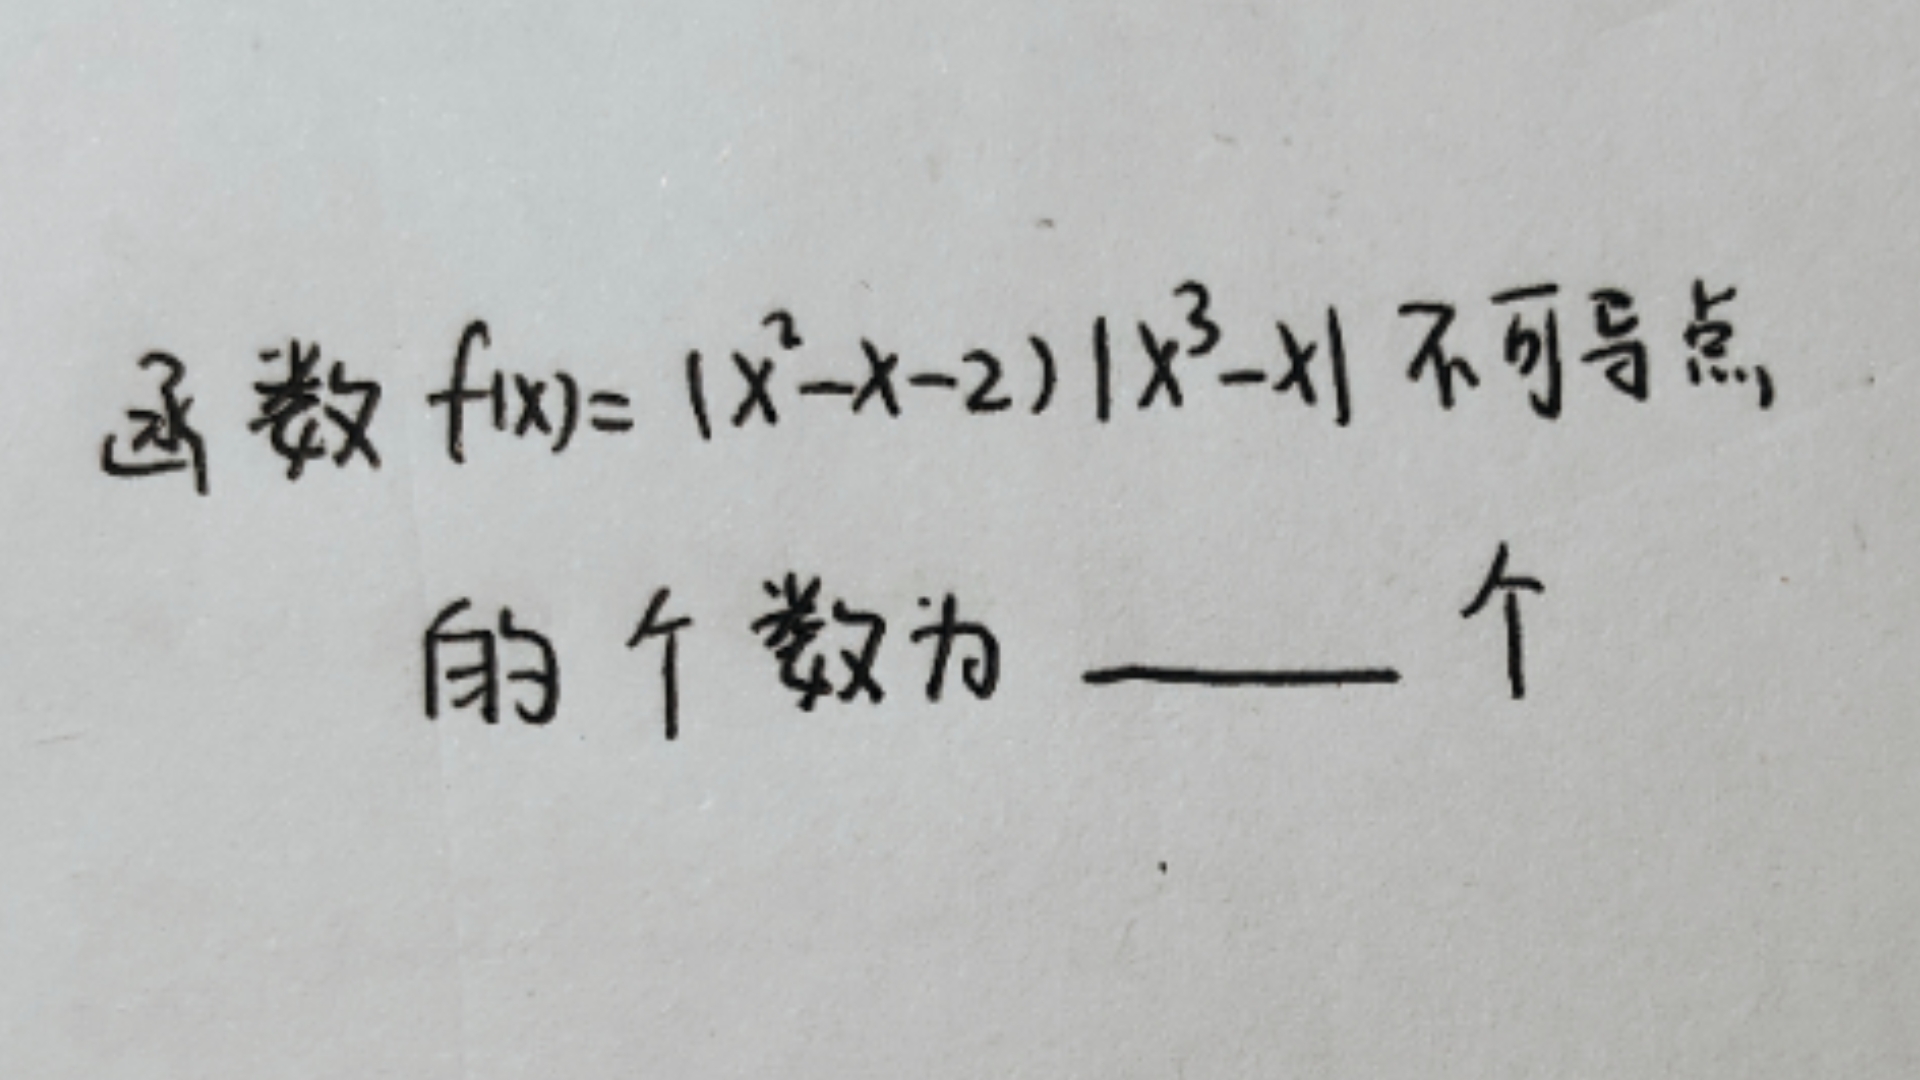 函数 f(x)= (x²-x-2)|x³-x| 不可导点
的个数为 ____ 个